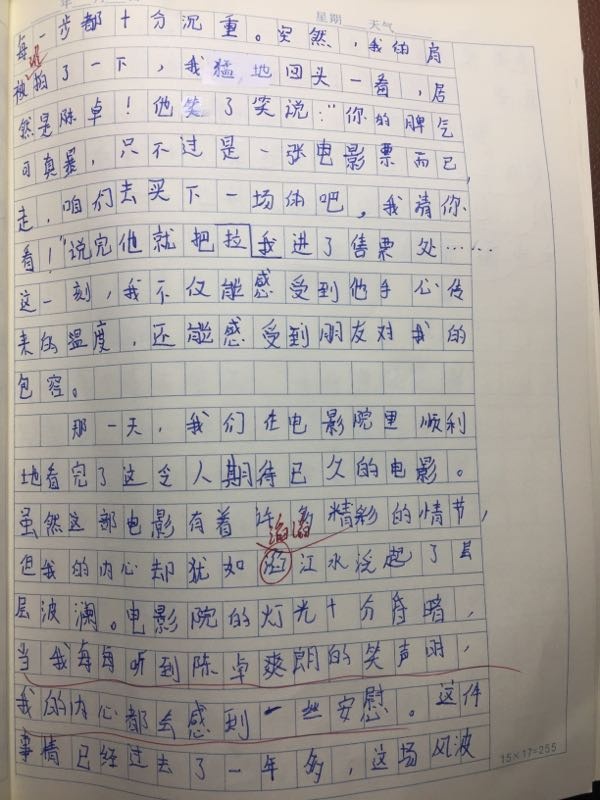 年 星期 天气
每一步都十分沉重。突然，我的肩
被拍了一下，我猛地回头一看，居
然是陈卓！他笑了笑说："你的脾气
可真暴，只不过是一张电影票而已，
走，咱们去买下一场的吧，我请你
看！"说完他就把拉我进了售票处……
这一刻，我不仅能感受到他手心传
来的温度，还能感受到朋友对我的
包容。
那一天，我们在电影院里顺利
地看完了这令人期待已久的电影。
虽然这部电影有着许多精彩的情节，
但我的内心却犹如江水泛起了层
层波澜。电影院的灯光十分昏暗，
当我每每听到陈卓爽朗的笑声时，
我的内心都会感到一丝安慰。这件
事情已经过去了一年多，这场风波
15×17=255